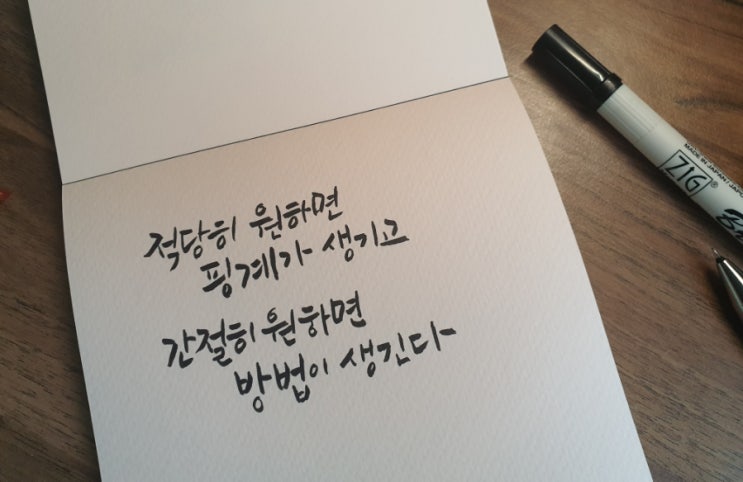 적당히 원하면
핑계가 생기고
간절히 원하면
방법이 생긴다
MADE IN JAPAN / JAPO
ZIG®